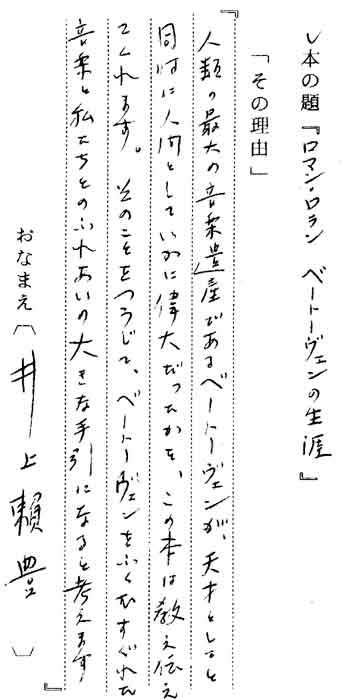 レ本の題『ロマン・ロラン ベートーヴェンの生涯』
「その理由」
『人類の最大の音楽遺産であるベートーヴェンが、天才としてと
同時に人間としていかに偉大だったかを、この本は教え伝え
てくれます。そのことをつうじて、ベートーヴェンをふくむすぐれた
音楽と私たちとのふれあいの大きな手引になると考えます』
おなまえ〔井上頼豊〕